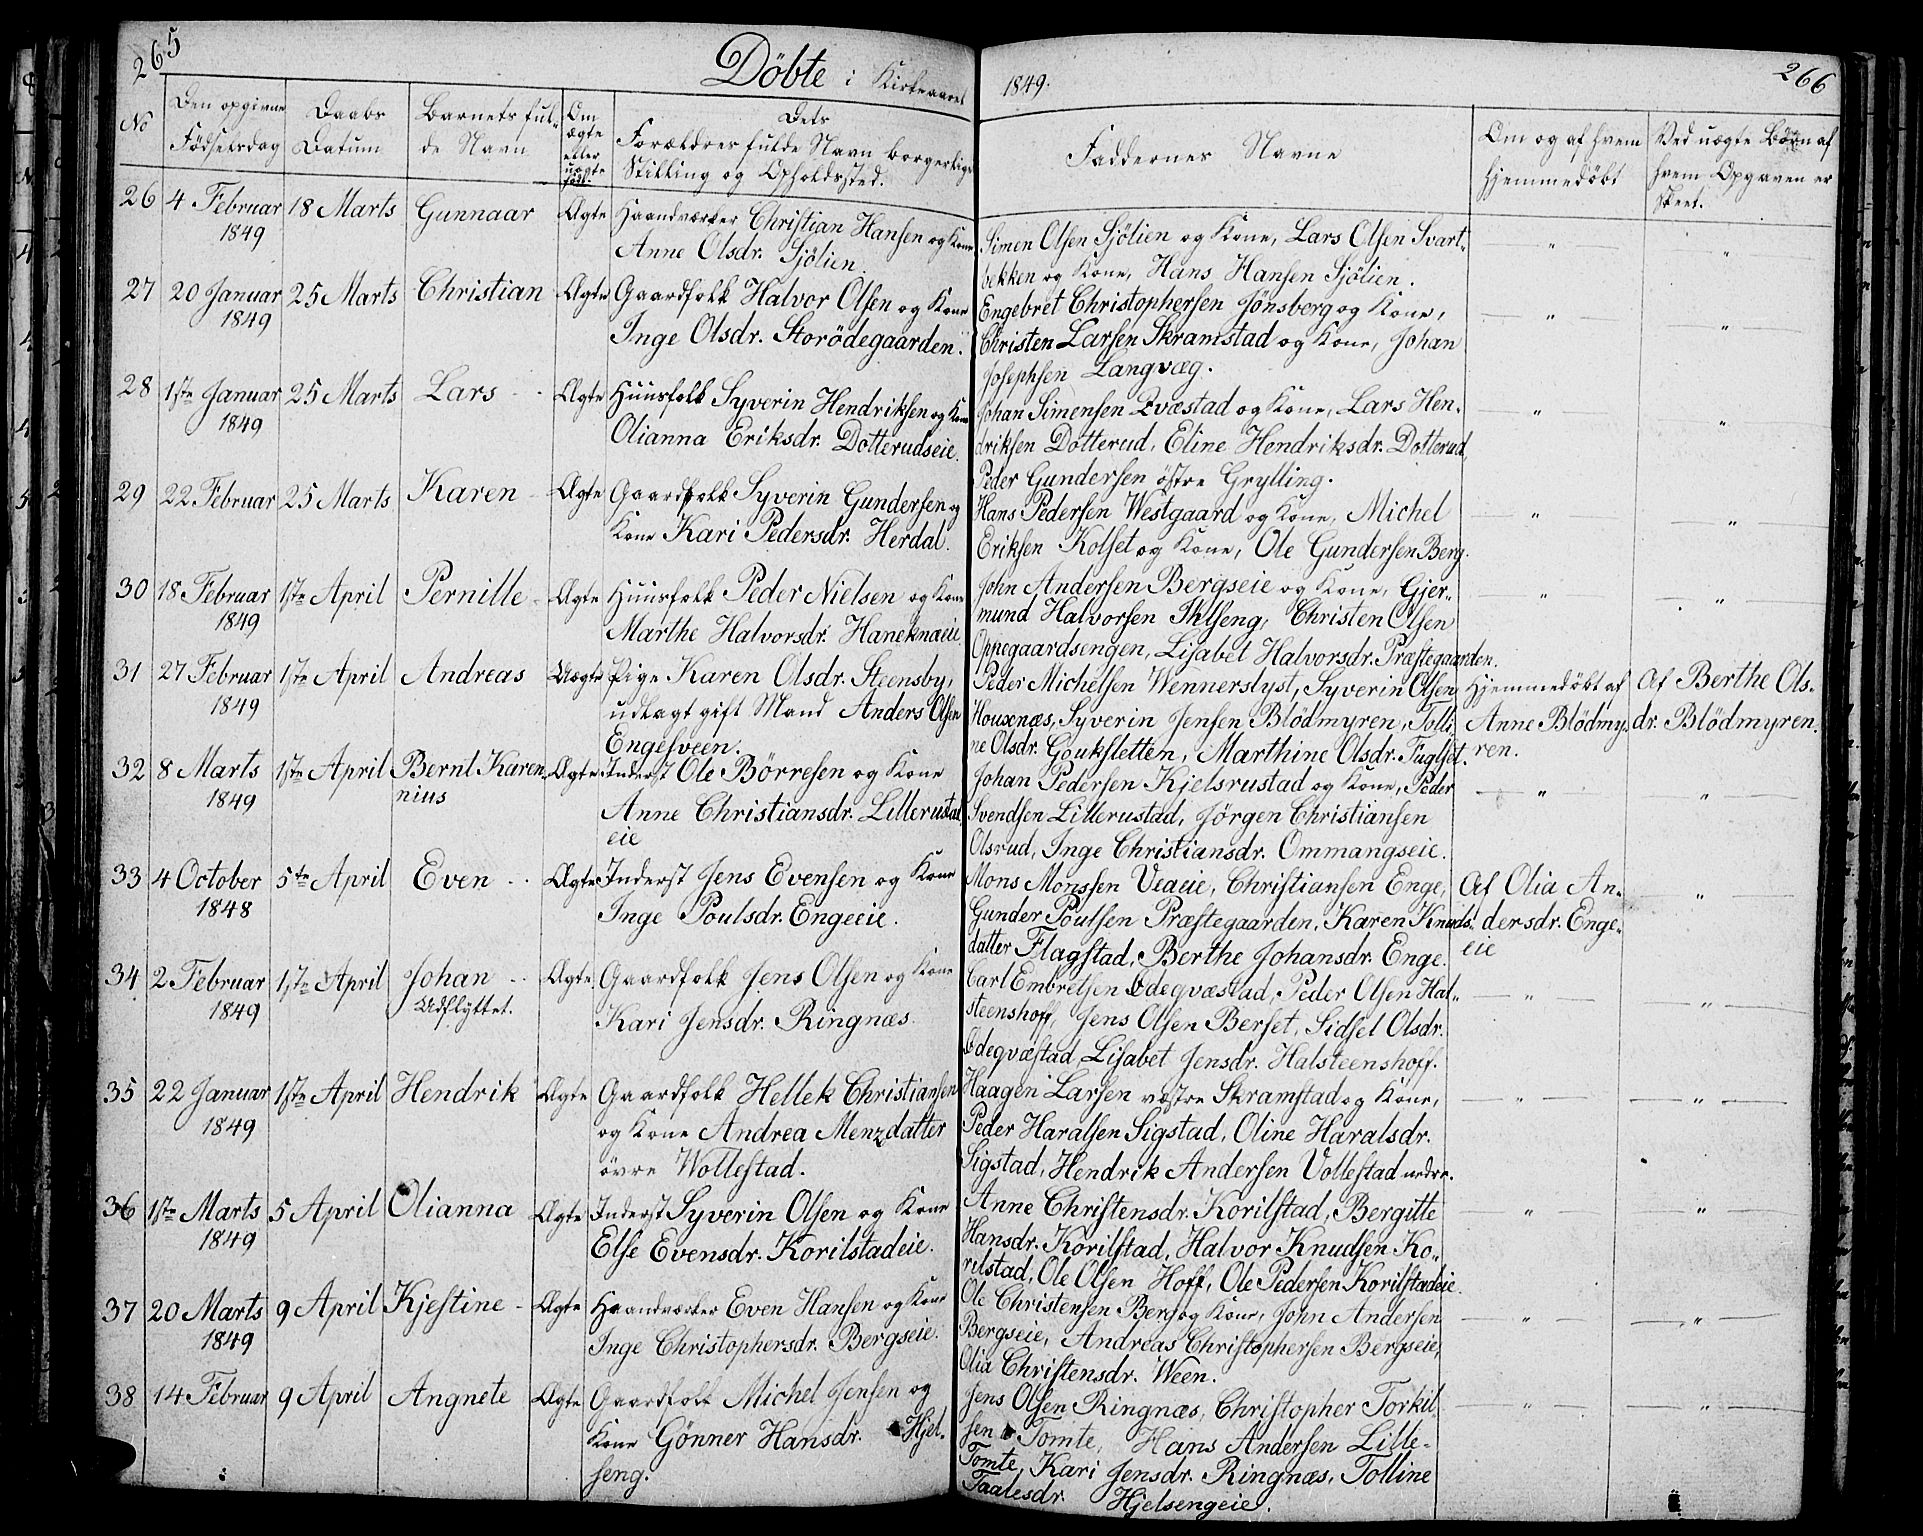 265
Döbte i Kirkeaaret
No
Den opgivne Födselsdag
Daabs Datum
Barnets ful-de Navn
Om ægte eller uægte födt.
Dets Forældres fulde Navn borgerlige Stilling og Opholdssted.
26 4 Februar 1849 18 Marts Gunnaar Ægte Haandværker Christian Hansen og Kone
Anne Olsdr. Sjölien.
27 20 Januar 1849 25 Marts Christian Ægte Gaardfolk Halvor Olsen og Kone
Inge Olsdr. Storödegaarden.
28 1ste Januar 1849 25 Marts Lars Ægte Huusfolk Syverin Hendriksen og Kone
Olianna Eriksdr. Dotterudseie.
29 22 Februar 25 Marts Karen Ægte Gaardfolk Syverin Gundersen og
Kone Kari Pedersdr. Herdal.
30 18 Februar 1849 1ste April Pernille Ægte Huusfolk Peder Nielsen og Kone
Marthe Halvorsdr. Haneknaeie
31 27 Februar 1849 1ste April Andreas Uægte Pige Karen Olsdr. Steensby,
udlagt gift Mand Anders Olsen
Engesveen.
32 8 Marts 1849 1ste April Bernt Karenius Ægte Inderst Ole Börresen og Kone
Anne Christiansdr. Lillerustad
eie
33 4 October 1848 5te April Even Ægte Inderst Jens Evensen og Kone
Inge Poulsdr. Engeeie.
34 2 Februar 1849 1ste April Johan Udflyttet. Ægte Gaardfolk Jens Olsen og Kone
Kari Jensdr. Ringnæs.
35 22 Januar 1849 1ste April Hendrik Ægte Gaardfolk Hellek Christiansen
og Kone Andrea Menzdatter
övre Wollestad.
36 1ste Marts 1849 5 April Olianna Ægte Inderst Syverin Olsen og Kone
Else Evensdr. Korilstadeie.
37 20 Marts 1849 9 April Kjestine Ægte Haandværker Even Hansen og Kone
Inge Christophersdr. Bergseie.
38 14 Februar 9 April Angnete Ægte Gaardfolk Michel Jensen og
Kone Gönner Hansdr. Hjel-
seng.
1849.
266
Faddernes Navne
Om og af hvem hjemmedöbt
Ved uægte Börn af hvem Opgaven er skeet.
Simen Olsen Sjölien og Kone, Lars Olsen Svart-
bekken og Kone, Hans Hansen Sjölien.
Engebret Christophersen Jönsberg og Kone,
Christen Larsen Skramstad og Kone, Johan
Josephsen Langvæg.
Johan Simensen Qvæstad og Kone, Lars Hen-
driksen Dotterud, Eline Hendriksdr. Dotterud,
Peder Gundersen östre Grylling.
Hans Pedersen Westgaard og Kone, Michel
Eriksen Kolset og Kone, Ole Gundersen Berg.
John Andersen Bergseie og Kone, Gjer-
mund Halvorsen, Christen Olsen
Oppegaardsengen, Lisabet Halvorsdr. Præstegaarden.
Peder Michelsen Wennerslyst, Syverin Olsen Hjemmedöbt af Af Berthe Ols-
Housenæs, Syverin Jensen Blödmyren, Tolli- Anne Blödmy- dr. Blödmyren.
ne Olsdr. Goukstetten, Marthine Olsdr. Fuglset. ren.
Johan Pedersen Kjelsrustad og Kone, Peder
Svendsen Lillerustad, Jörgen Christiansen
Olsrud, Inge Christiansdr. Ommangseie.
Mons Monssen Veaeie, Christiansen Enge, Af Olia An-
Gunder Poulsen Præstegaarden, Karen Knuds- dersdr. Enge-
datter Flagstad, Berthe Johansdr. Enge. eie
Carl Embretsen Ödeqvæstad, Peder Olsen Hal-
steenshoff, Jens Olsen Berset, Sidsel Olsdr.
Ödeqvæstad, Lisabet Jensdr. Halsteenshoff.
Haagen Larsen væstre Skramstad og Kone,
Peder Haralsen Sigstad, Oline Haralsdr.
Sigstad, Hendrik Andersen Vollestad nedre.
Anne Christensdr. Korilstad, Bergitte
Hansdr. Korilstad, Halvor Knudsen Ko-
rilstad, Ole Olsen Hoff, Ole Pedersen Korilstadeie.
Ole Christensen Berg og Kone, John Andersen
Bergseie, Andreas Christophersen Bergseie,
Olia Christensdr. Ween.
Jens Olsen Ringnæs, Christopher Torkil-
sen Tomte, Hans Andersen Lille-
Tomte, Kari Jensdr. Ringnæs, Tolline
Taalesdr. Hjelsengeie.